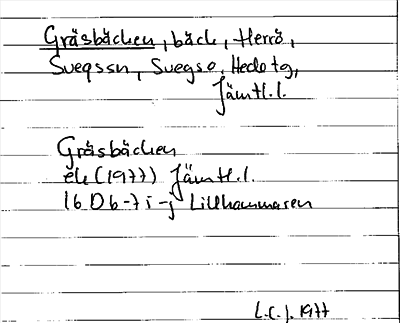 Gräsbäcken, bäck, Herrö,
Svegssn, Svegs o. Hede tg,
Jämtl. l.
Gräsbäcken
ek (1977) Jämtl. l.
16 D b-7 i-j Lillhammaren
L.C.J. 1977